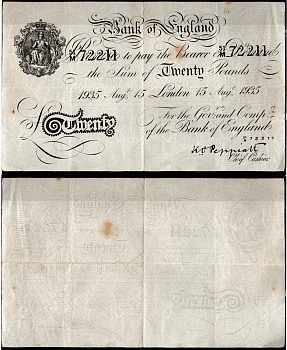 Bank of England
72211 to pay the Bearer 72211
the Sum of Twenty Pounds
1935 Aug. 15 London 15 Aug. 1935
For the Gov.r and Comp.a
of the Bank of England
£Twenty
72211
K O Peppiatt
Chief Cashier